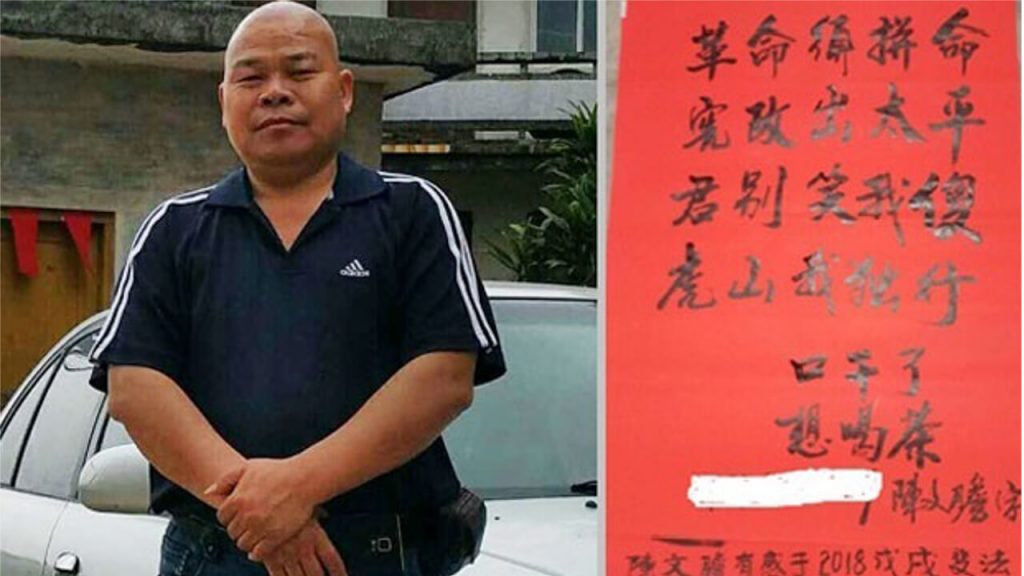 adidas
革命须拼命
宪改出太平
君别笑我傻
虎山我独行
口干了
想喝茶
陳文膽字
陳文膽有感于2018戊戌变法